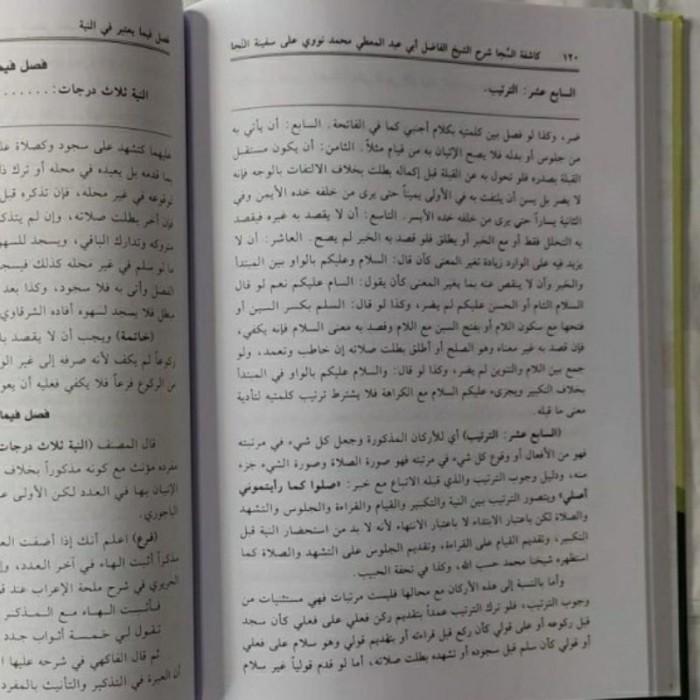 ١٢٠ كاشفة السُّجا شرح الشيخ الفاضل أبي عبد المعطي محمد نووي على سفينة النَّجا
السابع عشر: الترتيب.
ضر، وكذا لو فصل بين كلمتيه بكلام أجنبي كما في الفاتحة. السابع: أن يأتي به
من جلوس أو بدله فلا يصح الإتيان به من قيام مثلاً. الثامن: أن يكون مستقبل
القبلة بصدره فلو تحول به عن القبلة قبل إكماله بطلت بخلاف الالتفات بالوجه فإنه
لا يضر بل يسن أن يلتفت به في الأولى يميناً حتى يرى من خلفه خده الأيمن وفي
الثانية يساراً حتى يرى من خلفه خده الأيسر. التاسع: أن لا يقصد به غيره فيقصد
به التحلل فقط أو مع الخبر أو يطلق فلو قصد به الخبر لم يصح. العاشر: أن لا
يزيد فيه على الوارد زيادة تغير المعنى كأن قال: السلام وعليكم بالواو بين المبتدأ
والخبر وأن لا ينقص عنه بما يغير المعنى كأن يقول: السام عليكم نعم لو قال
السلام التام أو الحسن عليكم لم يضر، وكذا لو قال: السلم بكسر السين أو
فتحها مع سكون اللام أو بفتح السين مع اللام وقصد به معنى السلام فإنه يكفي،
فإن قصد به غير معناه وهو الصلح أو أطلق بطلت صلاته إن خاطب وتعمد، ولو
جمع بين اللام والتنوين لم يضر، وكذا لو قال: والسلام عليكم بالواو في المبتدأ
بخلاف التكبير ويجزىء عليكم السلام مع الكراهة فلا يشترط ترتيب كلمتيه لتأدية
معنى ما قبله.
(السابع عشر: الترتيب) أي للأركان المذكورة وجعل كل شيء في مرتبته
فهو من الأفعال أو وقوع كل شيء في مرتبته فهو صورة الصلاة وصورة الشيء جزء
منه، ودليل وجوب الترتيب والذي قبله الاتباع مع خبر: «صلوا كما رأيتموني
أصلي» ويتصور الترتيب بين النية والتكبير والقيام والقراءة والجلوس والتشهد
والصلاة لكن باعتبار الابتداء لا باعتبار الانتهاء لأنه لا بد من استحضار النية قبل
التكبير، وتقديم القيام على القراءة، وتقديم الجلوس على التشهد والصلاة كما
استظهره شيخنا محمد حسب الله، وكذا في تحفة الحبيب.
وأما بالنسبة إلى هذه الأركان مع محالها فليست مرتبات فهي مستثنيات من
وجوب الترتيب، فلو ترك الترتيب عمداً بتقديم ركن فعلي على فعلي كأن سجد
قبل ركوعه أو على قولي كأن ركع قبل قراءته أو بتقديم قولي وهو سلام على فعلي
أو قولي كأن سلم قبل سجوده أو تشهده بطلت صلاته، أما لو قدم قولياً غير سلام
فصل فيما يعتبر في النية
فصل فيما
النية ثلاث درجات: ......
عليهما كتشهد على سجود وصلاة عل
بما قدمه بل يعيده في محله أو ترك
لوقوعه في غير محله، فإن تذكره قبل
فإن أخر بطلت صلاته، وإن لم يتذكر
متروكه وتدارك الباقي، ويسجد للسهو
ما لو سلم في غير محله كذلك فيسجد
الفصل وأتى به فلا سجود، وكذا بعد
مطل فلا يسجد لسهوه أفاده الشرقاوي
(خاتمة) ويجب أن لا يقصد
ركوعاً لم يكف لأنه صرفه إلى غير
من الركوع فزعاً فلا يكفي فعليه أن يعود
فصل فيما
قال المصنف (النية ثلاث درجات
مفرده مؤنث مع كونه مذكوراً بخلاف
الإتيان بها في العدد لكن الأولى
الباجوري.
(فرع) اعلم أنك إذا أضفت
مذكراً أثبت الهاء في آخر العدد،
الحريري في شرح ملحة الإعراب عند
فأثبت الهاء مع المذكر
تقول لي خمسة أثواب جدد
ثم قال الفاكهي في شرحه عليها
أن العبرة في التذكير والتأنيث بالمفرد